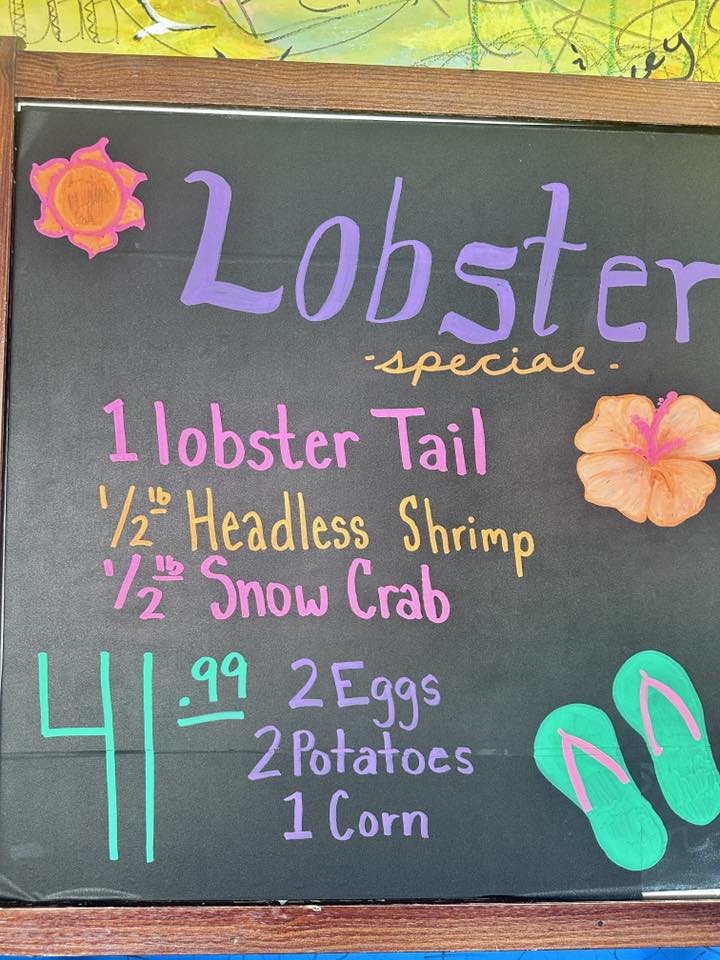 Lobster
-special-
1 lobster Tail
1/2 lb Headless Shrimp
1/2 lb Snow Crab
41.99
2 Eggs
2 Potatoes
1 Corn